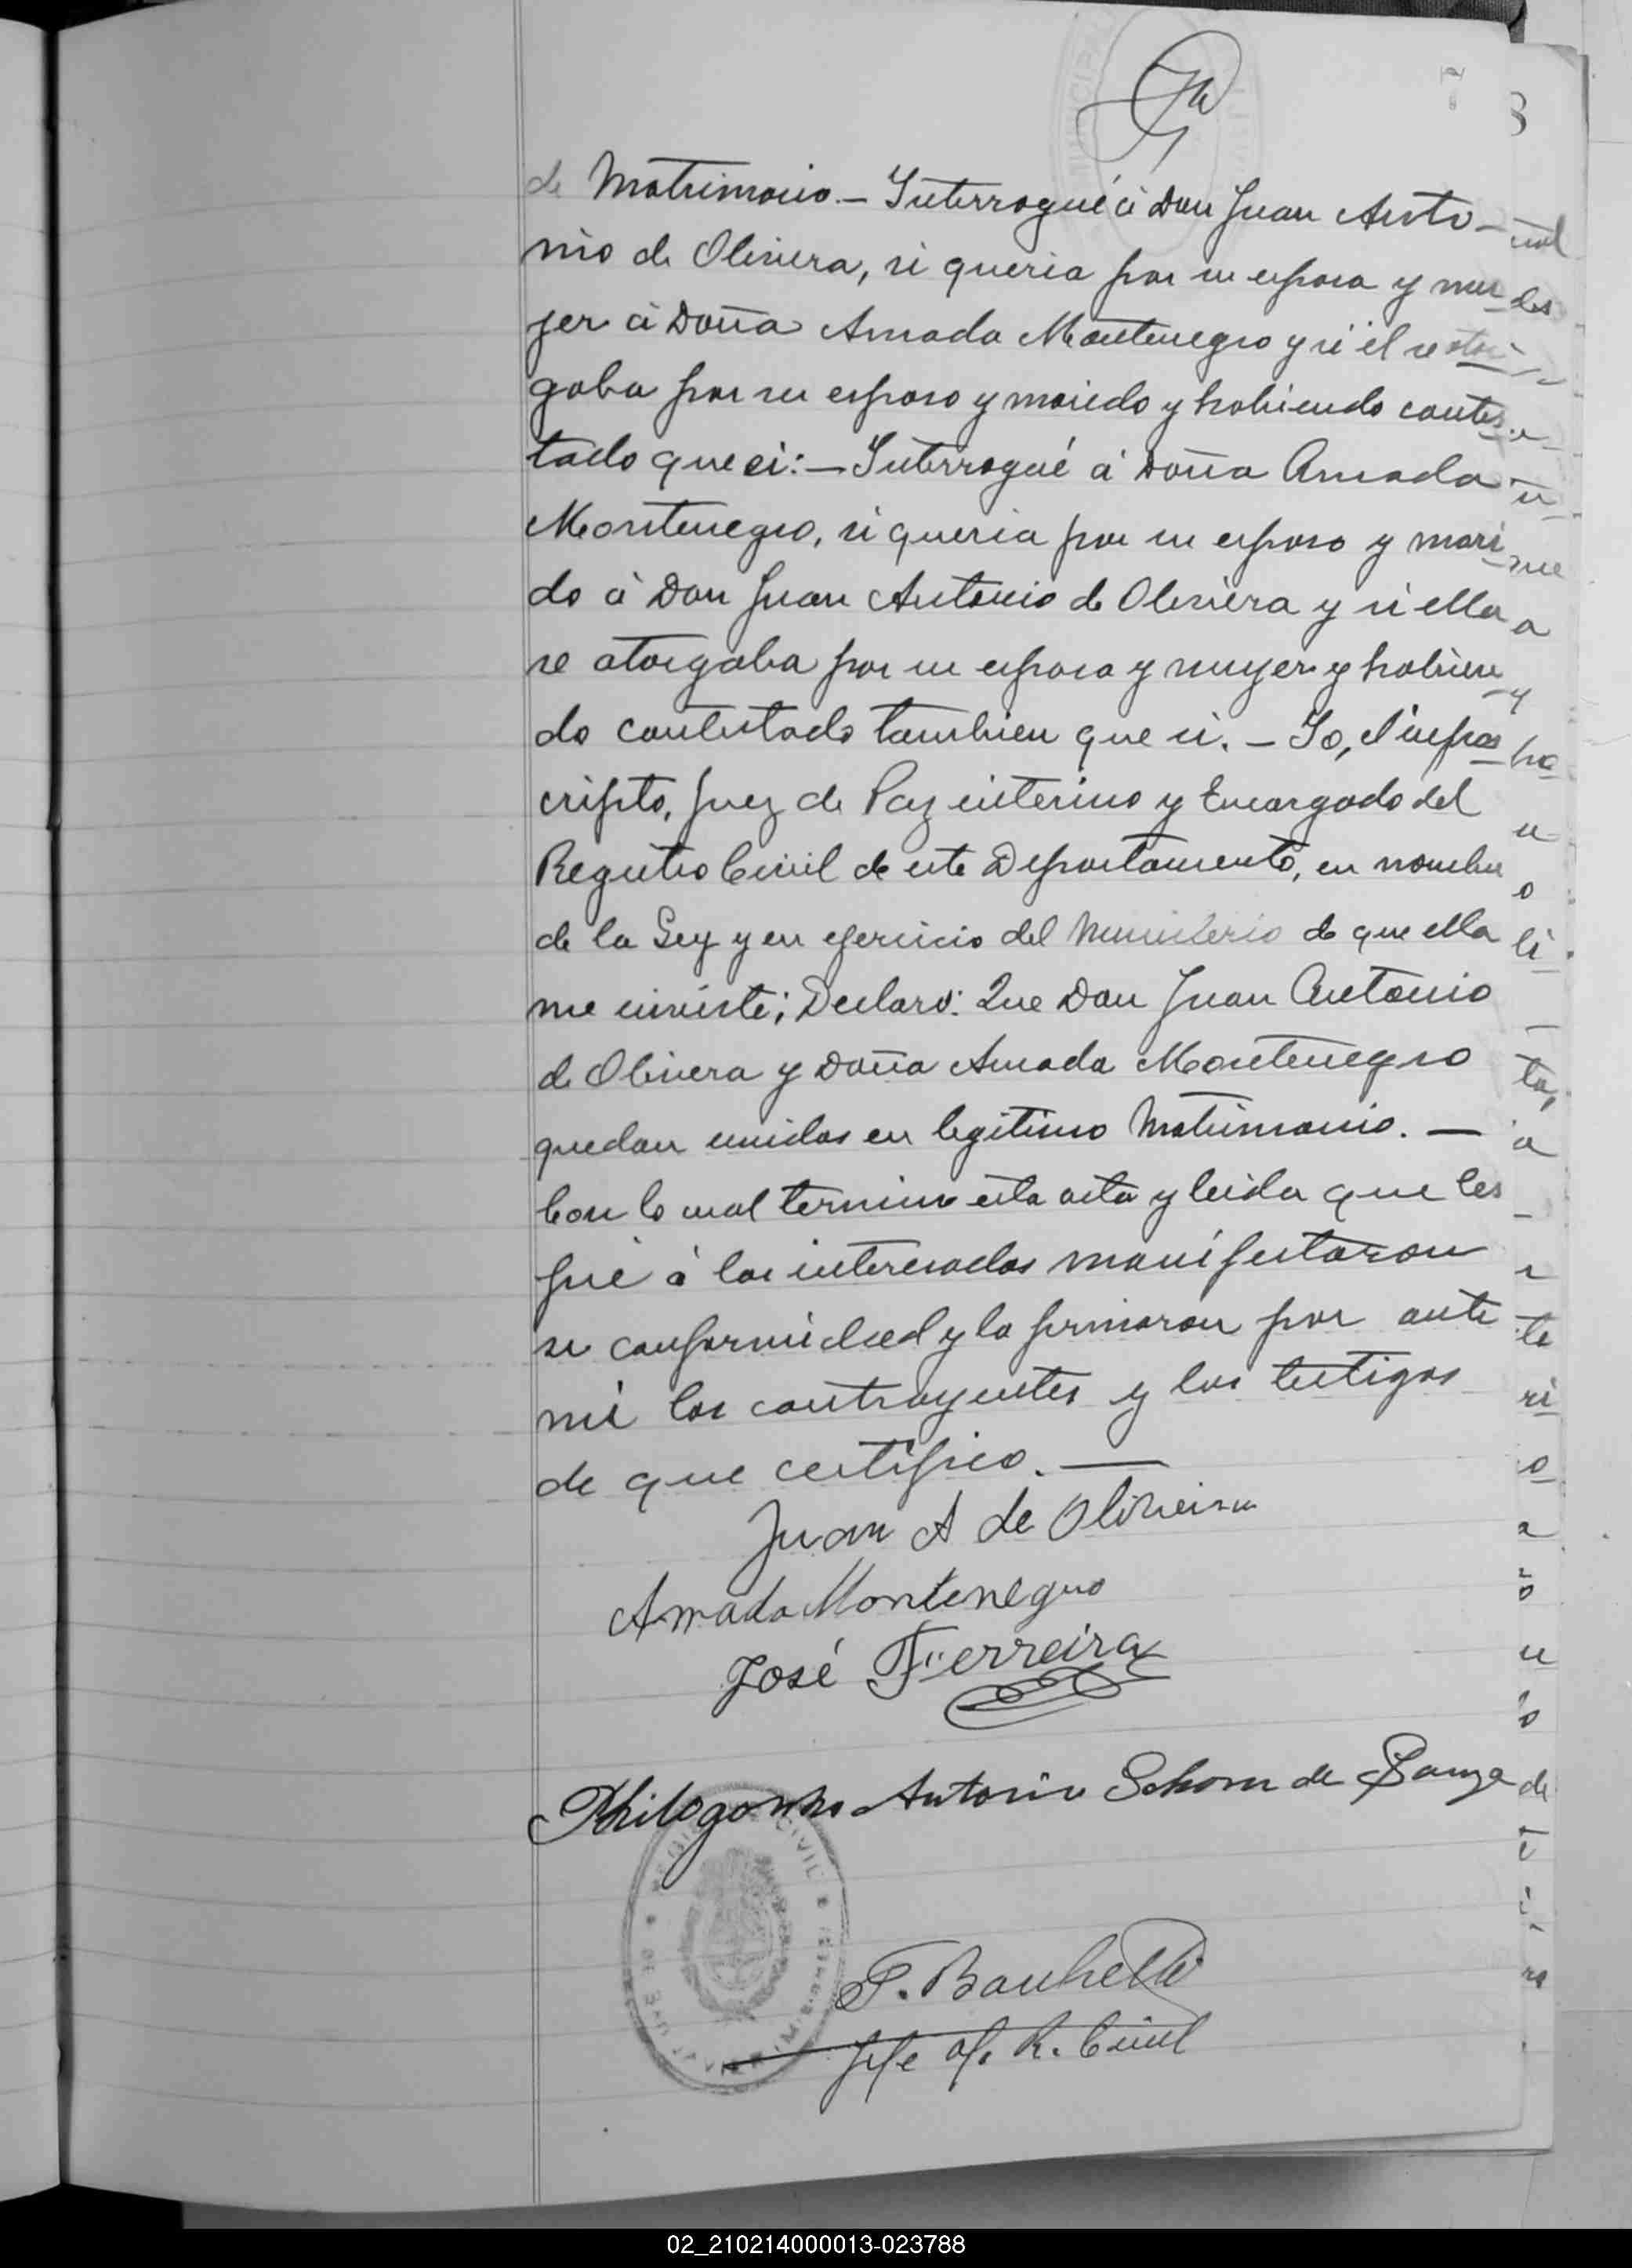 7 8
de Matrimonio.— Interrogué á Don Juan Anto-
nio de Olivera, si queria por su esposa y mu-
jer á Doña Amada Montenegro y si él se otor-
gaba por su esposo y marido y habiendo contes-
tado que si:— Interrogué á Doña Amada
Montenegro, si queria por su esposo y mari-
do á Don Juan Antonio de Olivera y si ella
se otorgaba por su esposa y mujer y habien-
do contestado tambien que si.— Yo, el infras-
cripto, Juez de Paz interino y Encargado del
Registro Civil de este Departamento, en nombre
de la Ley y en ejercicio del Ministerio de que ella
me inviste; Declaro: Que Don Juan Antonio
de Olivera y Doña Amada Montenegro
quedan unidos en legitimo Matrimonio.—
Con lo cual termino esta acta y leida que les
fué á los interesados manifestaron
su conformidad y la firmaron por ante
mi los contrayentes y los testigos
de que certifico.—
Juan A de Oliveira
Amada Montenegro
José Ferreira
Philogonho Antonio Schorn de Souza
REGISTRO CIVIL
Jefe of. R. Civil
02_210214000013-023788